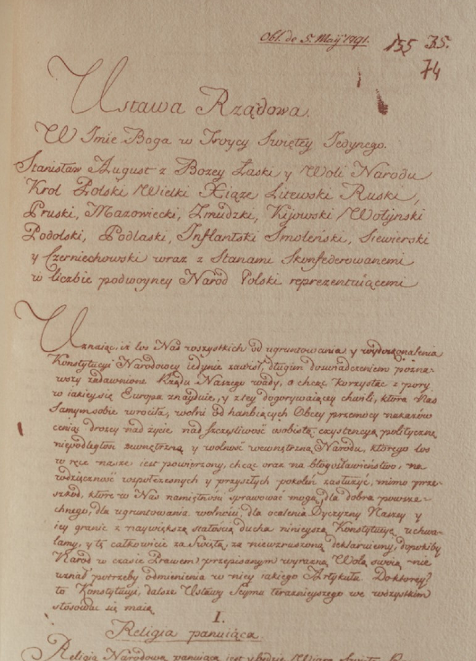 Obl. de 5. Maij 1791.
155 35.
74
Ustawa Rządowa.
W Imie Boga w Troycy Swiętey Jedynego.
Stanisław August z Bozey Łaski y Woli Narodu
Krol Polski Wielki Xiąze Litewski Ruski,
Pruski, Mazowiecki, Zmudzki, Kijowski Wołyński
Podolski, Podlaski, Inflantski Smoleński, Siewierski
y Czerniechowski wraz z Stanami Skonfederowanemi
w liczbie podwoyney Naród Polski reprezentuiącemi
Uznaiąc, iż los Nas wszystkich od ugruntowania y wydoskonalenia
Konstytucyi Narodowey iedynie zawisł, długim doswiadczeniem pozna-
wszy zadawnione Rządu Naszego wady, a chcąc korzystać z pory
w iakiey się Europa znayduie, y z tey dogorywaiącey chwili, ktora Nas
Samym sobie wrociła, wolni od hanbiących Obcey przemocy nakazów
ceniąc drozey nad życie nad szczęsliwość osobistą, exystencyą polityczną
niepodległość zewnętrzną y wolność wewnętrzną Narodu, ktorego los
w ręce nasze iest powierzony, chcąc oraz na błogosławieństwo, na
wdzięczność wspołczesnych y przyszłych pokoleń zasłużyć, mimo prze-
szkód, ktore w Nas namiętności sprawować mogą, dla dobra powsze-
chnego, dla ugruntowania wolności, dla ocalenia Oyczyzny Naszey y
iey granic z naywiększą stałością ducha ninieyszą Konstytucyę uchwa-
lamy, y tę całkowicie za Swiętą, za niewzruszoną deklaruiemy, dopokiby
Naród w czasie Prawem przepisanym wyrazną Wolą swoią nie
uznał potrzeby odmienienia w niey iakiego Artykułu. Do ktorey
to Konstytucyi, dalsze Ustawy Seymu teraznieyszego we wszystkim
stosować się maią.
I.
Religia panuiąca.
Religią Narodową panuiącą iest y będzie Wiara Swięta